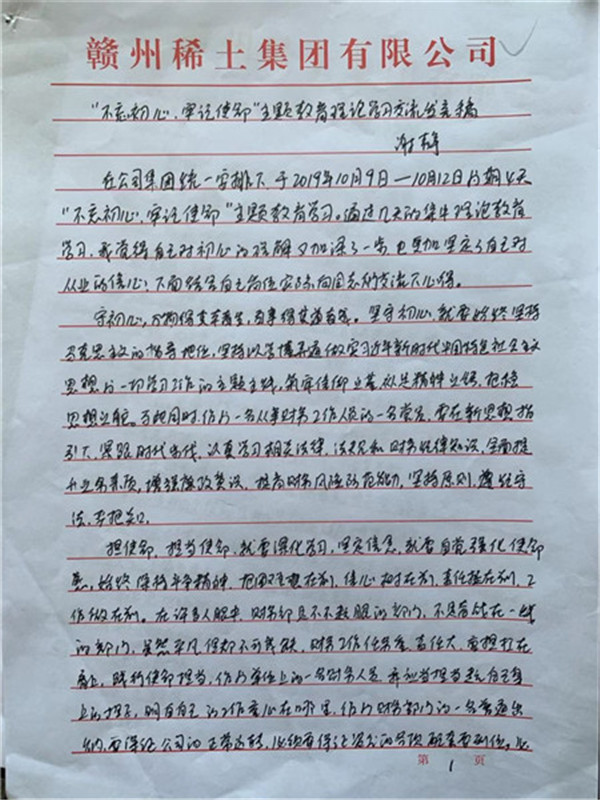 赣州稀土集团有限公司
“不忘初心、牢记使命”主题教育理论学习交流发言稿
谢
在公司集团统一安排下,于2019年10月9日—10月12日为期4天
“不忘初心,牢记使命”主题教育学习。通过几天的集中理论教育
学习,我觉得自己对初心的理解又加深了一步,也更加坚定了自己对
从业的信心;下面结合自己岗位实际,向同志们交流下心得。
守初心,万物得其本者生,百事得其道者成。坚守初心,就要始终坚持
马克思主义的指导地位,坚持以习近平新时代中国特色社会主义
思想为一切学习工作的主题主线,筑牢信仰之基,补足精神之钙,把稳
思想之舵。与此同时,作为一名从事财务工作人员的一名党员,要在新思想指
引下,紧跟时代步伐,认真学习相关法律、法规和财务法律知识,全面提
升业务素质,增强廉政意识,提高财务风险防范能力,坚持原则,遵纪守
法,严把关口。
担使命,担当使命,就要深化学习,坚定信念,就要自觉强化使命
感,始终保持斗争精神,把困难想在前,信心树在前,责任揽在前,工
作做在前。在许多人眼中,财务部是不不起眼的部门,不是奋战在一线
的部门,虽然平凡,但却不可或缺,财务工作任务重,责任大,重担扛在
肩上,践行使命担当,作为单位上的一名财务人员,亦应当担当起自己身
上的担子,明白自己的工作重心在哪里,作为财务部门的一名普通出
纳,要保证公司的正常运转,必须要保证资金的各项配套要到位。
第 1 页